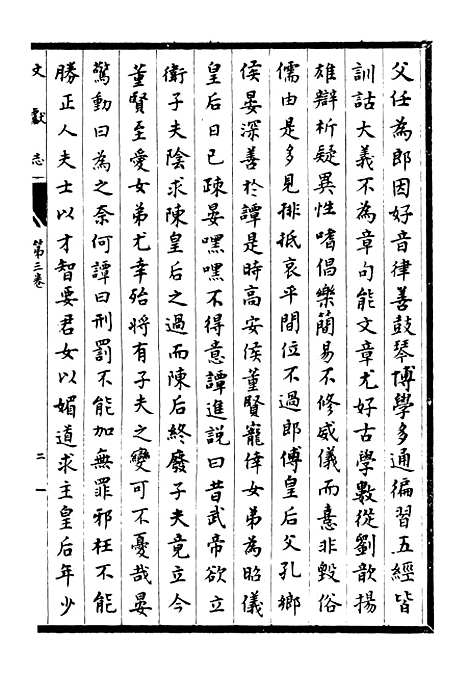 父任為郎因好音律善鼓琴博學多通徧習五經皆
訓詁大義不為章句能文章尤好古學數從劉歆揚
雄辯析疑異性嗜倡樂簡易不修威儀而憙非毀俗
儒由是多見排抵哀平間位不過郎傅皇后父孔鄉
侯晏深善於譚是時高安侯董賢寵倖女弟為昭儀
皇后日已疎晏嘿嘿不得意譚進說曰昔武帝欲立
衛子夫陰求陳皇后之過而陳后終廢子夫竟立今
董賢至愛女弟尤幸殆將有子夫之變可不憂哉晏
驚動曰為之奈何譚曰刑罰不能加無罪邪枉不能
勝正人夫士以才智要君女以媚道求主皇后年少
文獻志
第三卷
二一